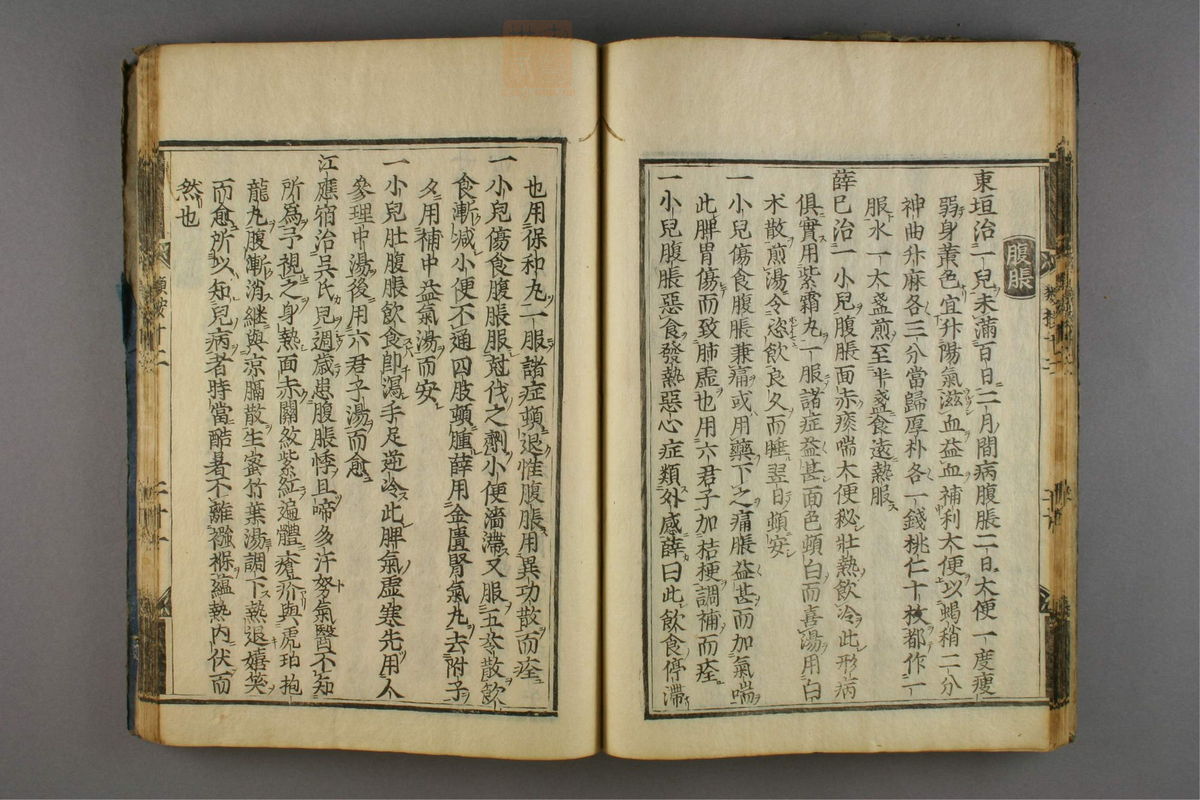 腹脹
東垣治一兒未滿百日二月間病腹脹二日大便一度瘦
弱身黃色宜升陽氣滋血益血補利大便以蝎稍二分
神曲升麻各三分當歸厚朴各一錢桃仁十枚都作一
服水一大盞煎至半盞食遠熱服
薛巳治一小兒腹脹面赤痰喘大便秘壯熱飲冷此形病
俱實用紫霜丸一服諸症益甚面色頓白而喜湯用白
术散煎湯令恣飲良久而睡翌日頓安
一小兒傷食腹脹兼痛或用藥下之痛脹益甚而加氣喘
此脾胃傷而致肺虛也用六君子加桔梗調補而痊
一小兒腹脹惡食發熱惡心症類外感薛曰此飲食停滯
也用保和丸一服諸症頓退惟腹脹用異功散而痊
一小兒傷食腹脹服尅伐之劑小便濇滯又服五苓散飲
食漸減小便不通四肢頓腫薛用金匱腎氣丸去附子
夕用補中益氣湯而安
一小兒肚腹脹飲食卽瀉手足逆冷此脾氣虛寒先用人
參理中湯後用六君子湯而愈
江應宿治吳氏兒週歲患腹脹悸且啼多汗努氣醫不知
所爲予視之身熱面赤關紋紫紅遍體瘡疥與虎珀抱
龍丸腹漸消繼與凉膈散生蜜竹葉湯調下熱退嬉笑
而愈所以知兒病者時當酷暑不離襁褓蘊熱內伏而
然也
類按十二